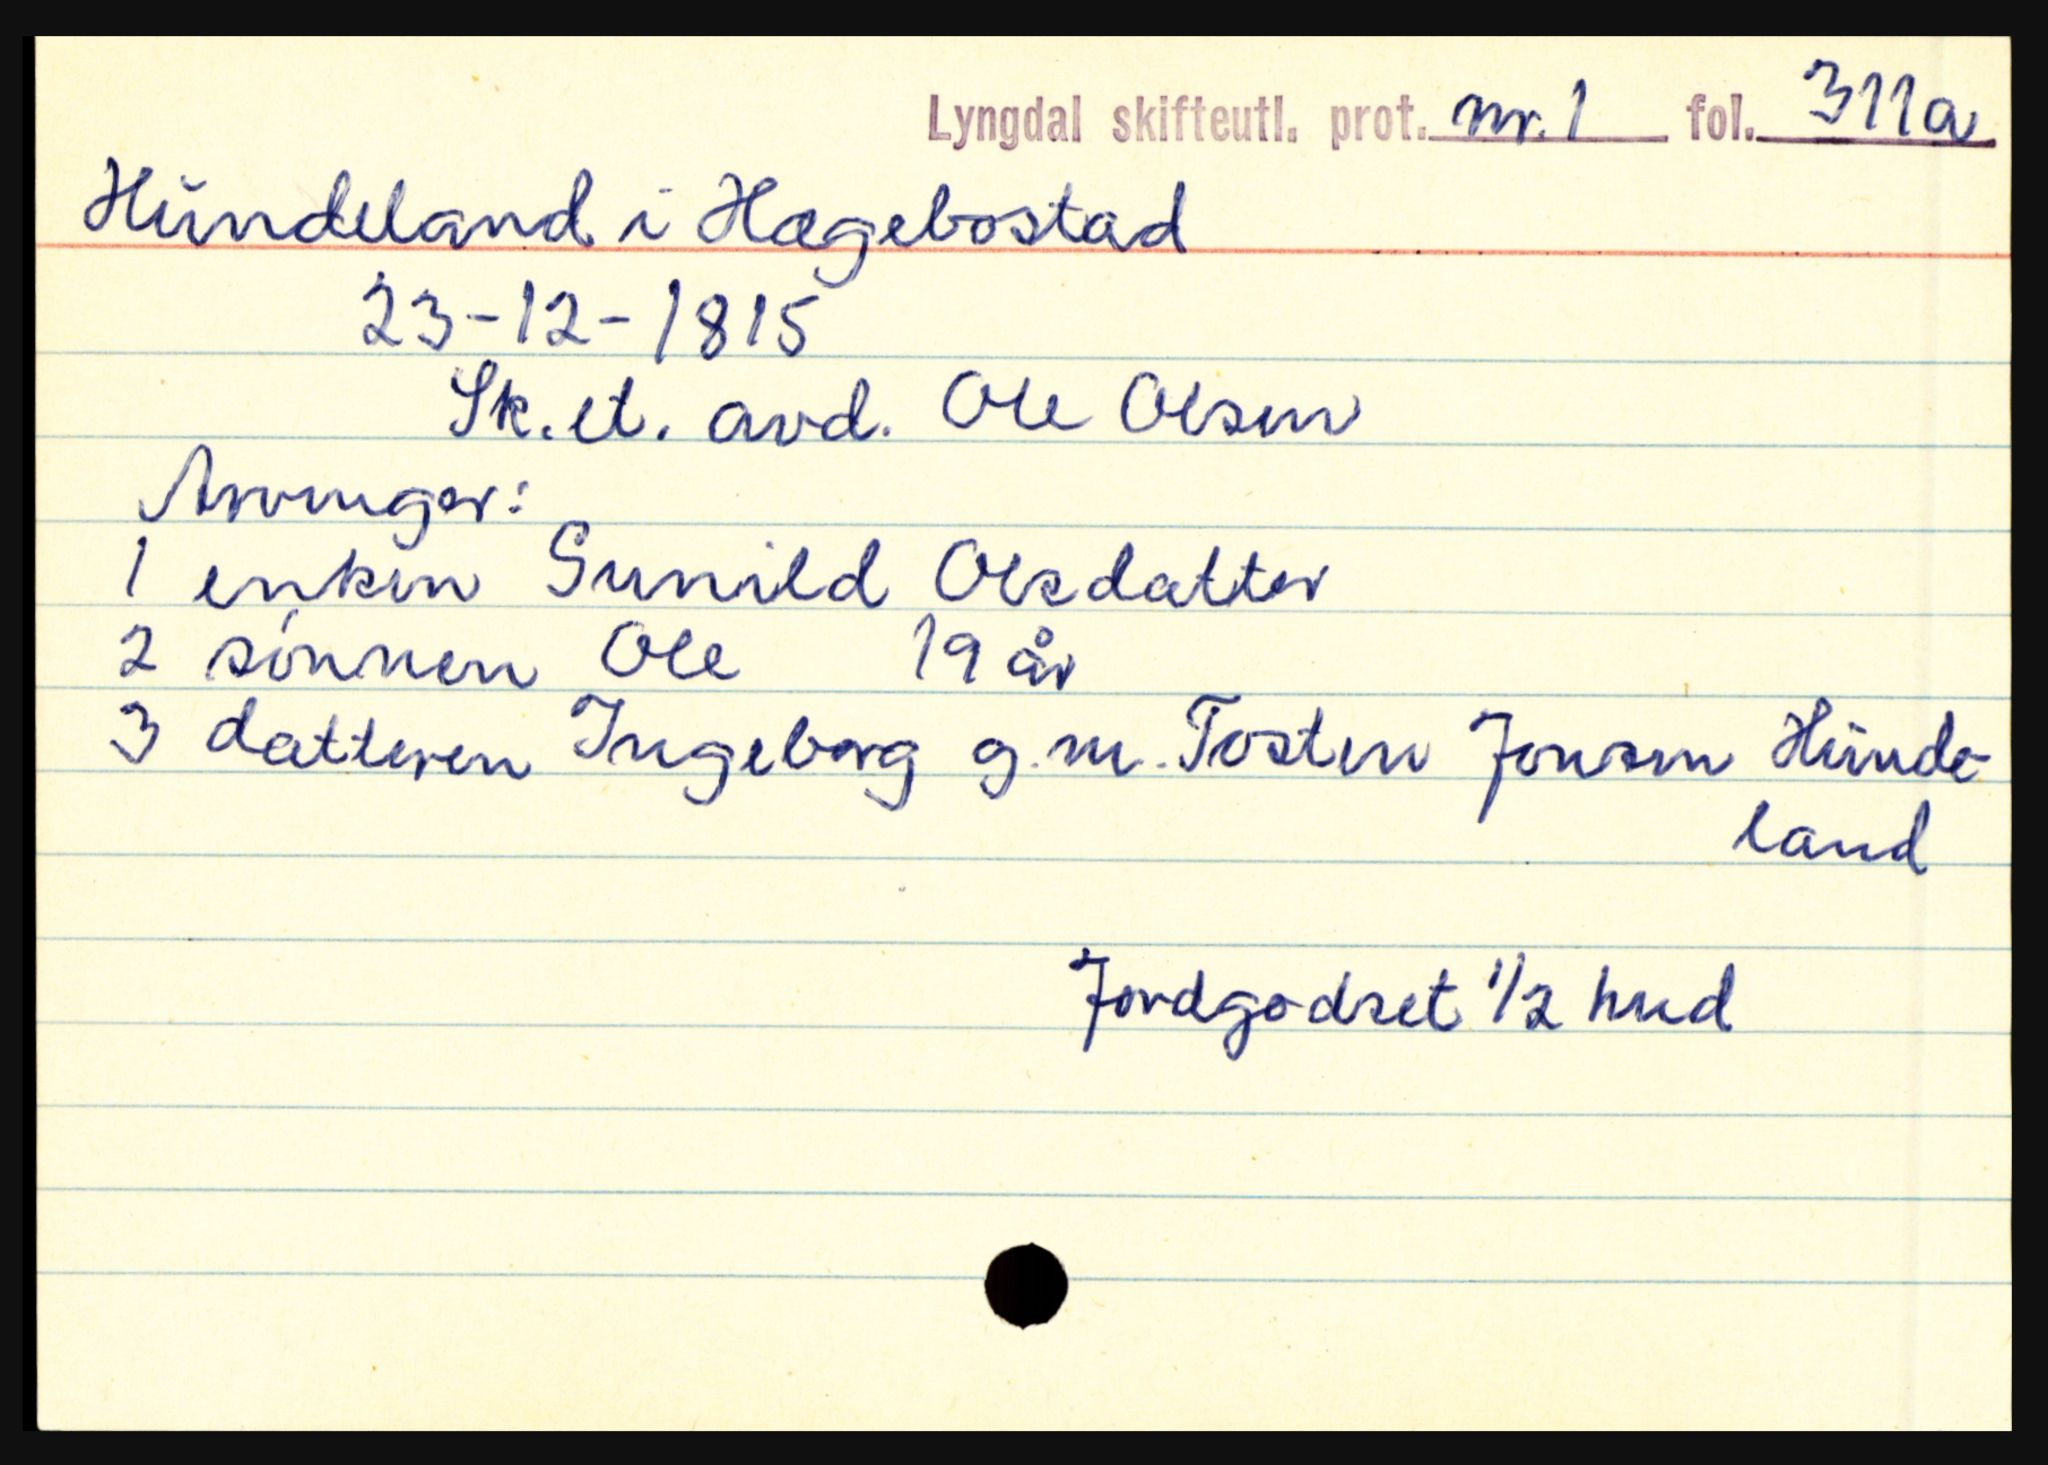 Lyngdal skifteutl. prot. nr. 1 fol. 311a
Hŭndeland i Hægebostad
23-12-1815
Sk. et. avd. Ole Olsen
Arvinger:
1 enken Gunild Olsdatter
2 sønnen Ole 19 år
3 datteren Ingeborg g.m. Tosten Jonsen Hŭnde-
land
Jordgodset 1/2 hud